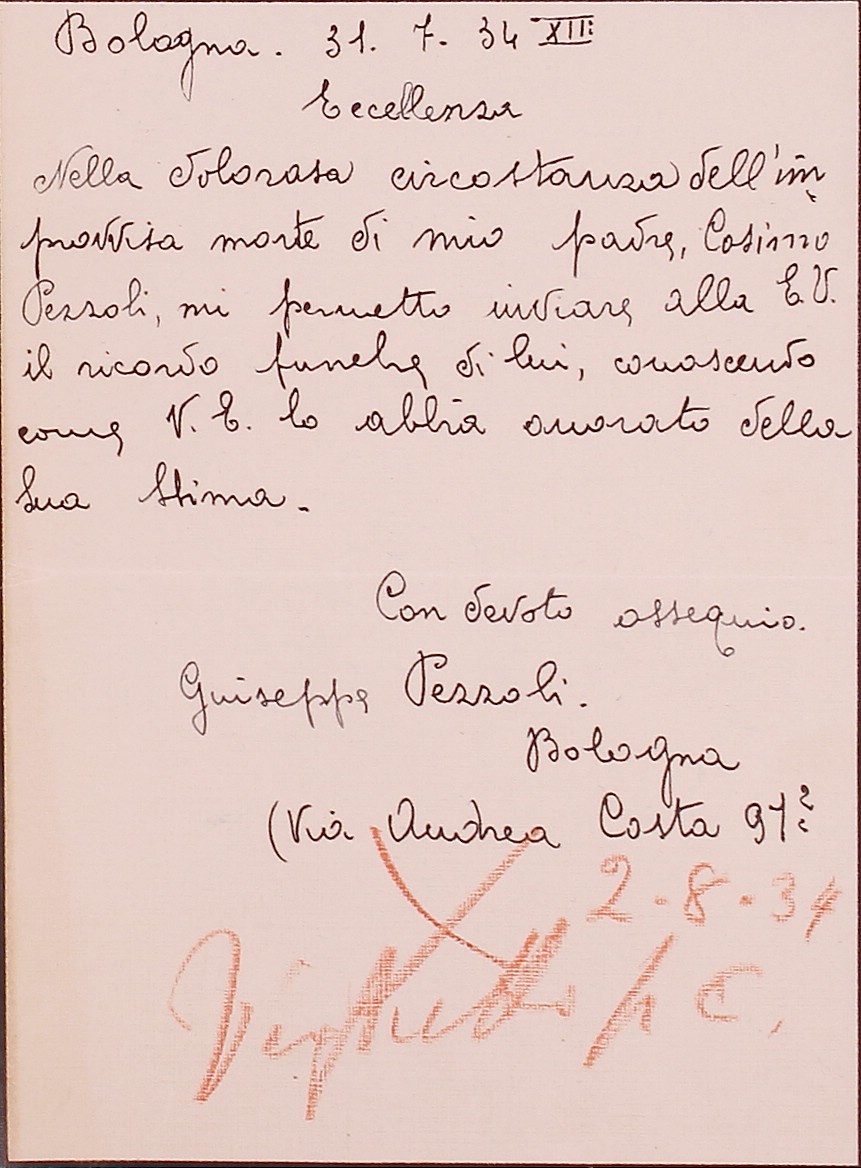 Bologna. 31. 7. 34 XII:
Eccellenza
Nella dolorasa circostanza dell'im
provvisa morte di mio padre, Cosimo
Pezzoli, mi permetto inviare alla E.V.
il ricordo funebre di lui, conoscendo
come V. E. lo abbia onorato della
Sua stima.
Con devoto ossequio.
Guiseppe Pezzoli.
Bologna
(Via Andrea Costa 97²
2-8-34
p C.